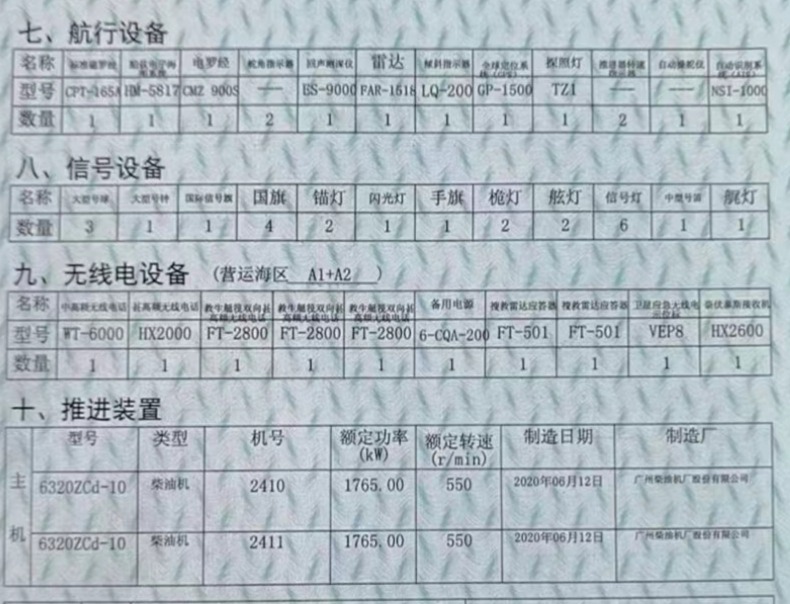 七、航行设备
名称 标准磁罗经 船载电子海图系统 电罗经 舵角指示器 回声测深仪 雷达 倾斜指示器 全球定位系统(GPS) 探照灯 推进器转速指示器 自动操舵仪 自动识别系统(AIS)
型号 CPT-165A HM-5817 CMZ 900S —— ES-9000 FAR-1518 LQ-200 GP-1500 TZ1 —— —— NSI-1000
数量 1 1 1 2 1 1 1 1 1 2 1 1
八、信号设备
名称 大型号球 大型号钟 国际信号旗 国旗 锚灯 闪光灯 手旗 桅灯 舷灯 信号灯 中型号笛 艉灯
数量 3 1 1 4 2 1 1 2 2 6 1 1
九、无线电设备 (营运海区 A1+A2 )
名称 中高频无线电话 甚高频无线电话 救生艇筏双向甚高频无线电话 救生艇筏双向甚高频无线电话 救生艇筏双向甚高频无线电话 备用电源 搜救雷达应答器 搜救雷达应答器 卫星应急无线电示位标 奈伏泰斯接收机
型号 WT-6000 HX2000 FT-2800 FT-2800 FT-2800 6-CQA-200 FT-501 FT-501 VEP8 HX2600
数量 1 1 1 1 1 1 1 1 1 1
十、推进装置
主机
型号 类型 机号 额定功率(kW) 额定转速(r/min) 制造日期 制造厂
6320ZCd-10 柴油机 2410 1765.00 550 2020年06月12日 广州柴油机厂股份有限公司
6320ZCd-10 柴油机 2411 1765.00 550 2020年06月12日 广州柴油机厂股份有限公司